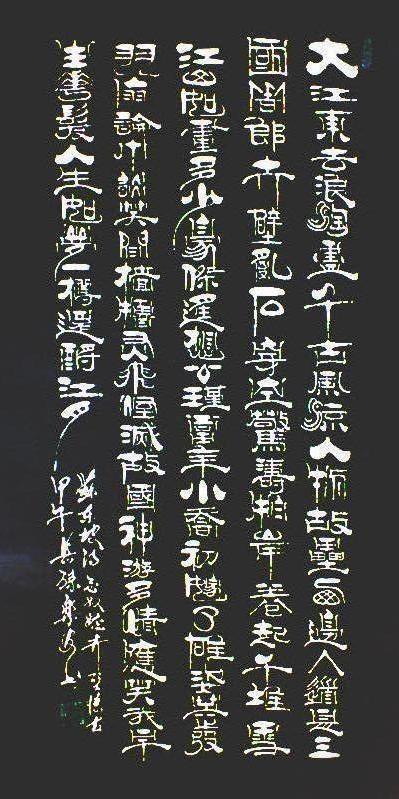 大江東去浪淘盡千古風流人物故壘西邊人道是三
國周郎赤壁亂石穿空驚濤拍岸卷起千堆雪
江山如畫多少豪傑遙想公瑾當年小喬初嫁了雄姿英發
羽扇綸巾談笑間檣櫓灰飛煙滅故國神游多情應笑我早
生華髮人生如夢一樽還酹江月
蘇東坡詞念奴嬌赤壁懷古
甲午